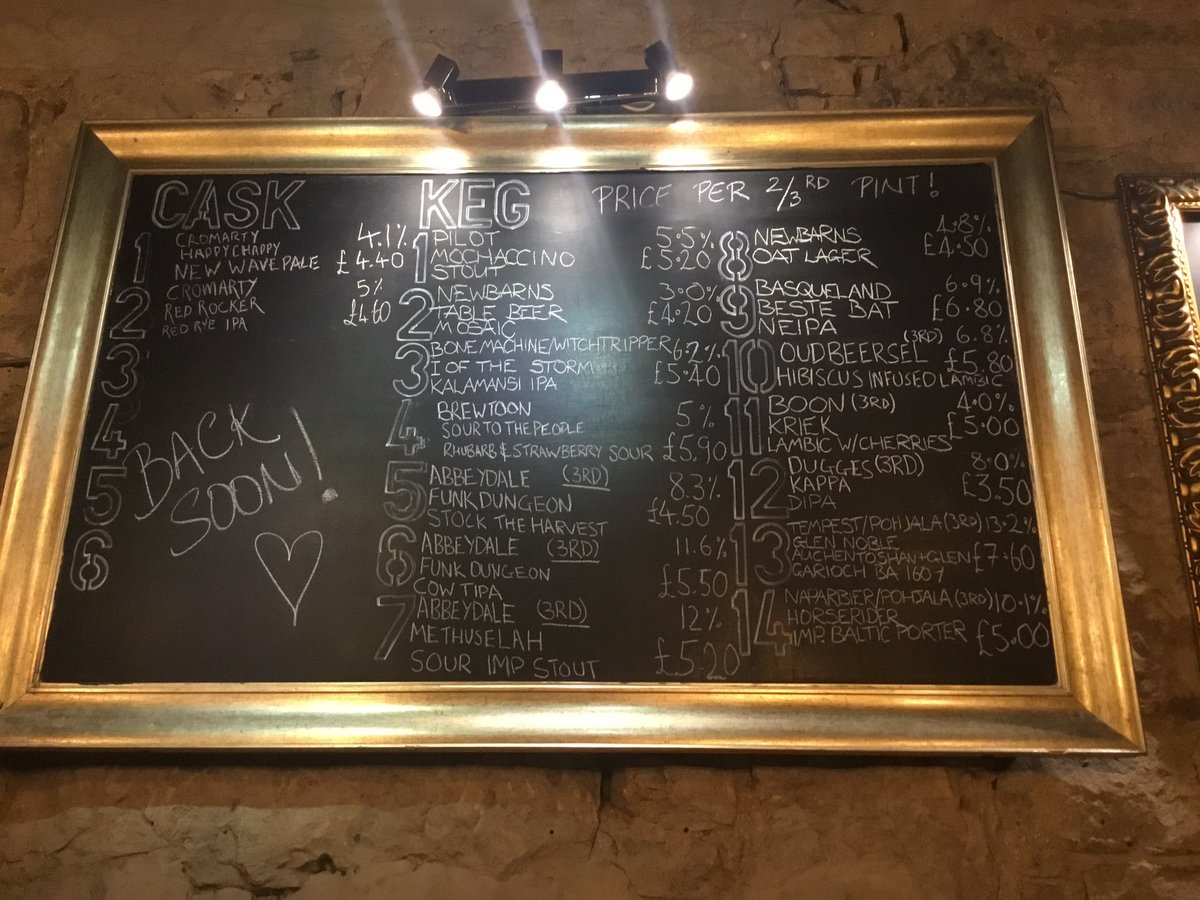 CASK
1 CROMARTY 4.1%
HAPPY CHAPPY
NEW WAVE PALE £4.40
2 CROMARTY 5%
RED ROCKER £4.60
RED RYE IPA
3
4
5
6
BACK
SOON!
KEG PRICE PER 2/3RD PINT!
1 PILOT 5.5%
MOCHACCINO £5.20
STOUT
2 NEWBARNS 3.0%
TABLE BEER £4.20
MOSAIC
3 BONE MACHINE/WITCHTRIPPER 6.2%
I OF THE STORM £5.40
KALAMANSI IPA
4 BREWTOON 5%
SOUR TO THE PEOPLE
RHUBARB & STRAWBERRY SOUR £5.90
5 ABBEYDALE (3RD) 8.3%
FUNK DUNGEON £4.50
STOCK THE HARVEST
6 ABBEYDALE (3RD) 11.6%
FUNK DUNGEON £5.50
COW TIPA
7 ABBEYDALE (3RD) 12%
METHUSELAH
SOUR IMP STOUT £5.20
8 NEWBARNS 4.8%
OAT LAGER £4.50
9 BASQUELAND 6.9%
BESTE BAT £6.80
NEIPA
10 (3RD) 6.8%
OUDBEERSEL £5.80
HIBISCUS INFUSED LAMBIC
11 BOON (3RD) 4.0%
KRIEK £5.00
LAMBIC W/CHERRIES
12 DUGGES (3RD) 8.0%
KAPPA £3.50
DIPA
13 TEMPEST/POHJALA (3RD) 13.2%
GLEN NOBLE
AUCHENTOSHAN + GLEN £7.60
GARIOCH BA 1607
14 NAPARBIER/POHJALA (3RD) 10.1%
HORSERIDER
IMP. BALTIC PORTER £5.00